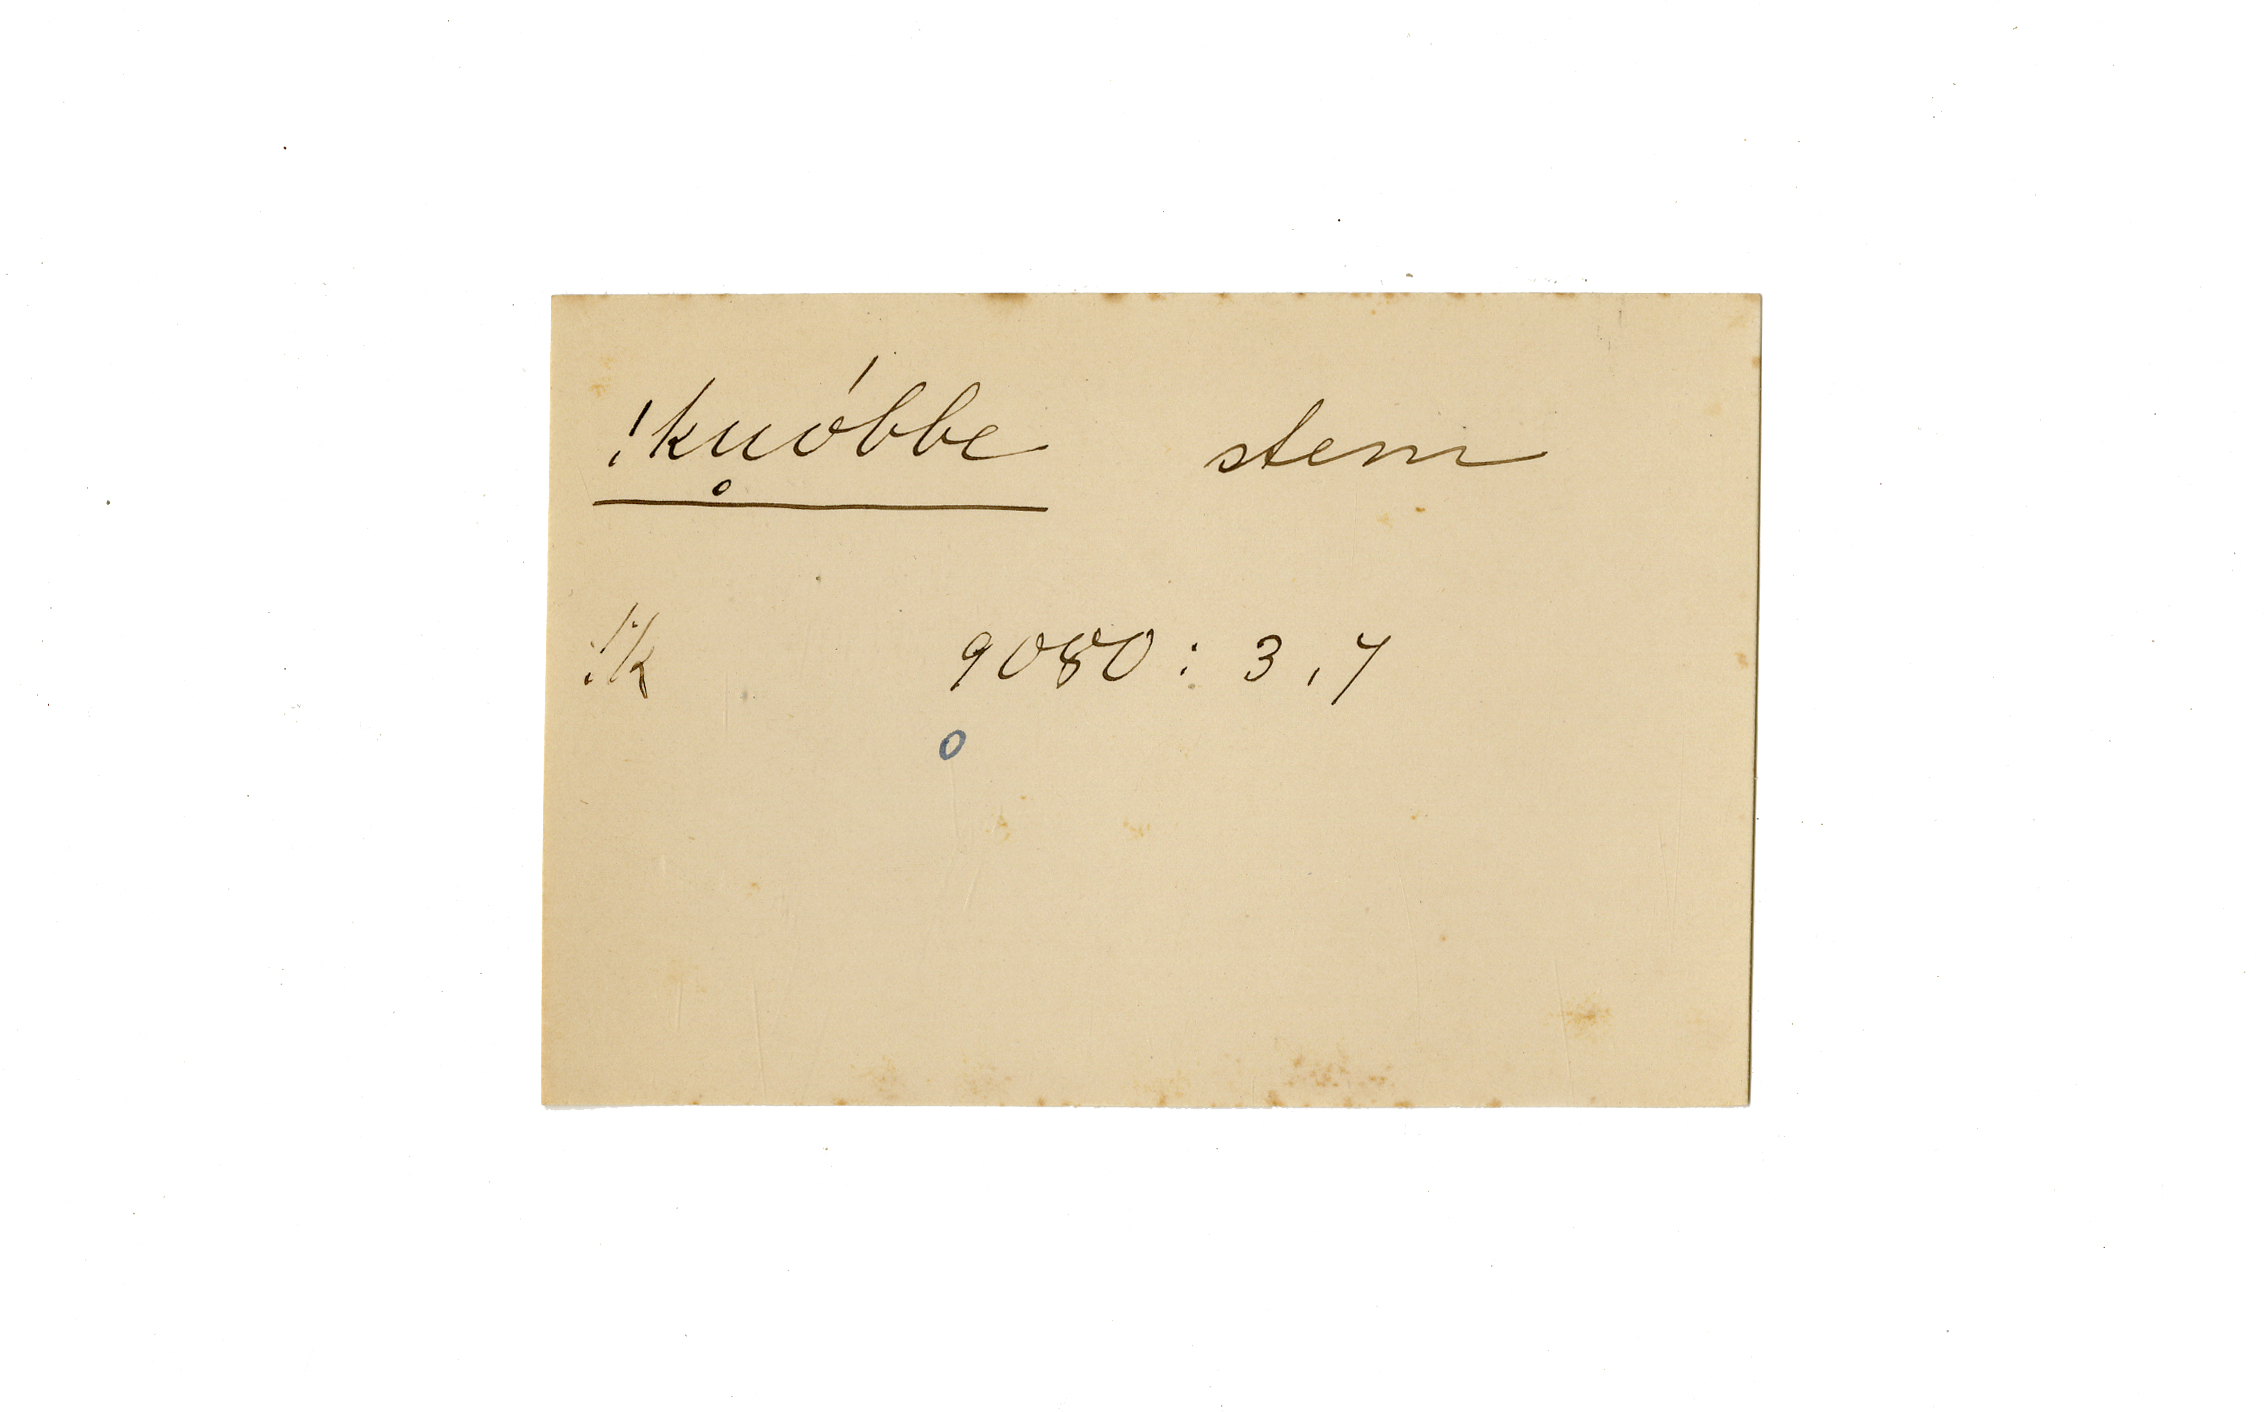 !ku̥óbbe stem
!k 9080 : 3, 7
o